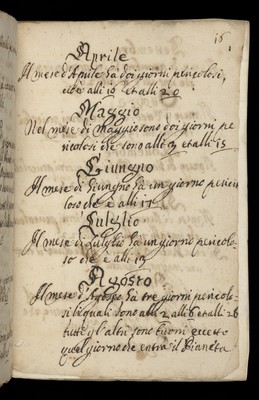 16
Aprile
Il mese d'Aprile hà doi giorni pericolosi,
cioè alli 10 et alli 20
Maggio
Nel mese di Maggio sono doi giorni pe
ricolosi che sono alli 3 et alli 15
Giungno
Il mese di Giungno hà un giorno pericu
loso che è alli 17
Lulglio
Il mese di Lulglio hà un giorno pericolo-
so che è alli 13
Agosto
Il mese d'Agosto hà tre giorni pericolo-
si li quali sono alli 2 alli et alli 26
tutti gl'altri sono buoni eccetto
quel giorno che entra il Pianeta